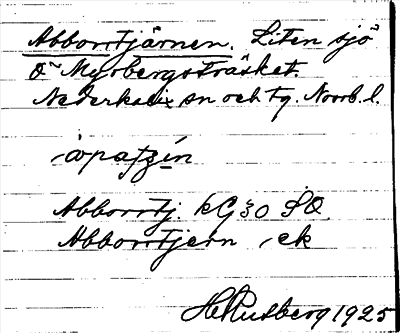 Abborrtjärnen. Liten sjö
Ö Myrbergsträsket.
Nederkalix sn och tg. Norrb. l.
Abborrtj. kG
Abborrtjern ek
H Rusberg 1925